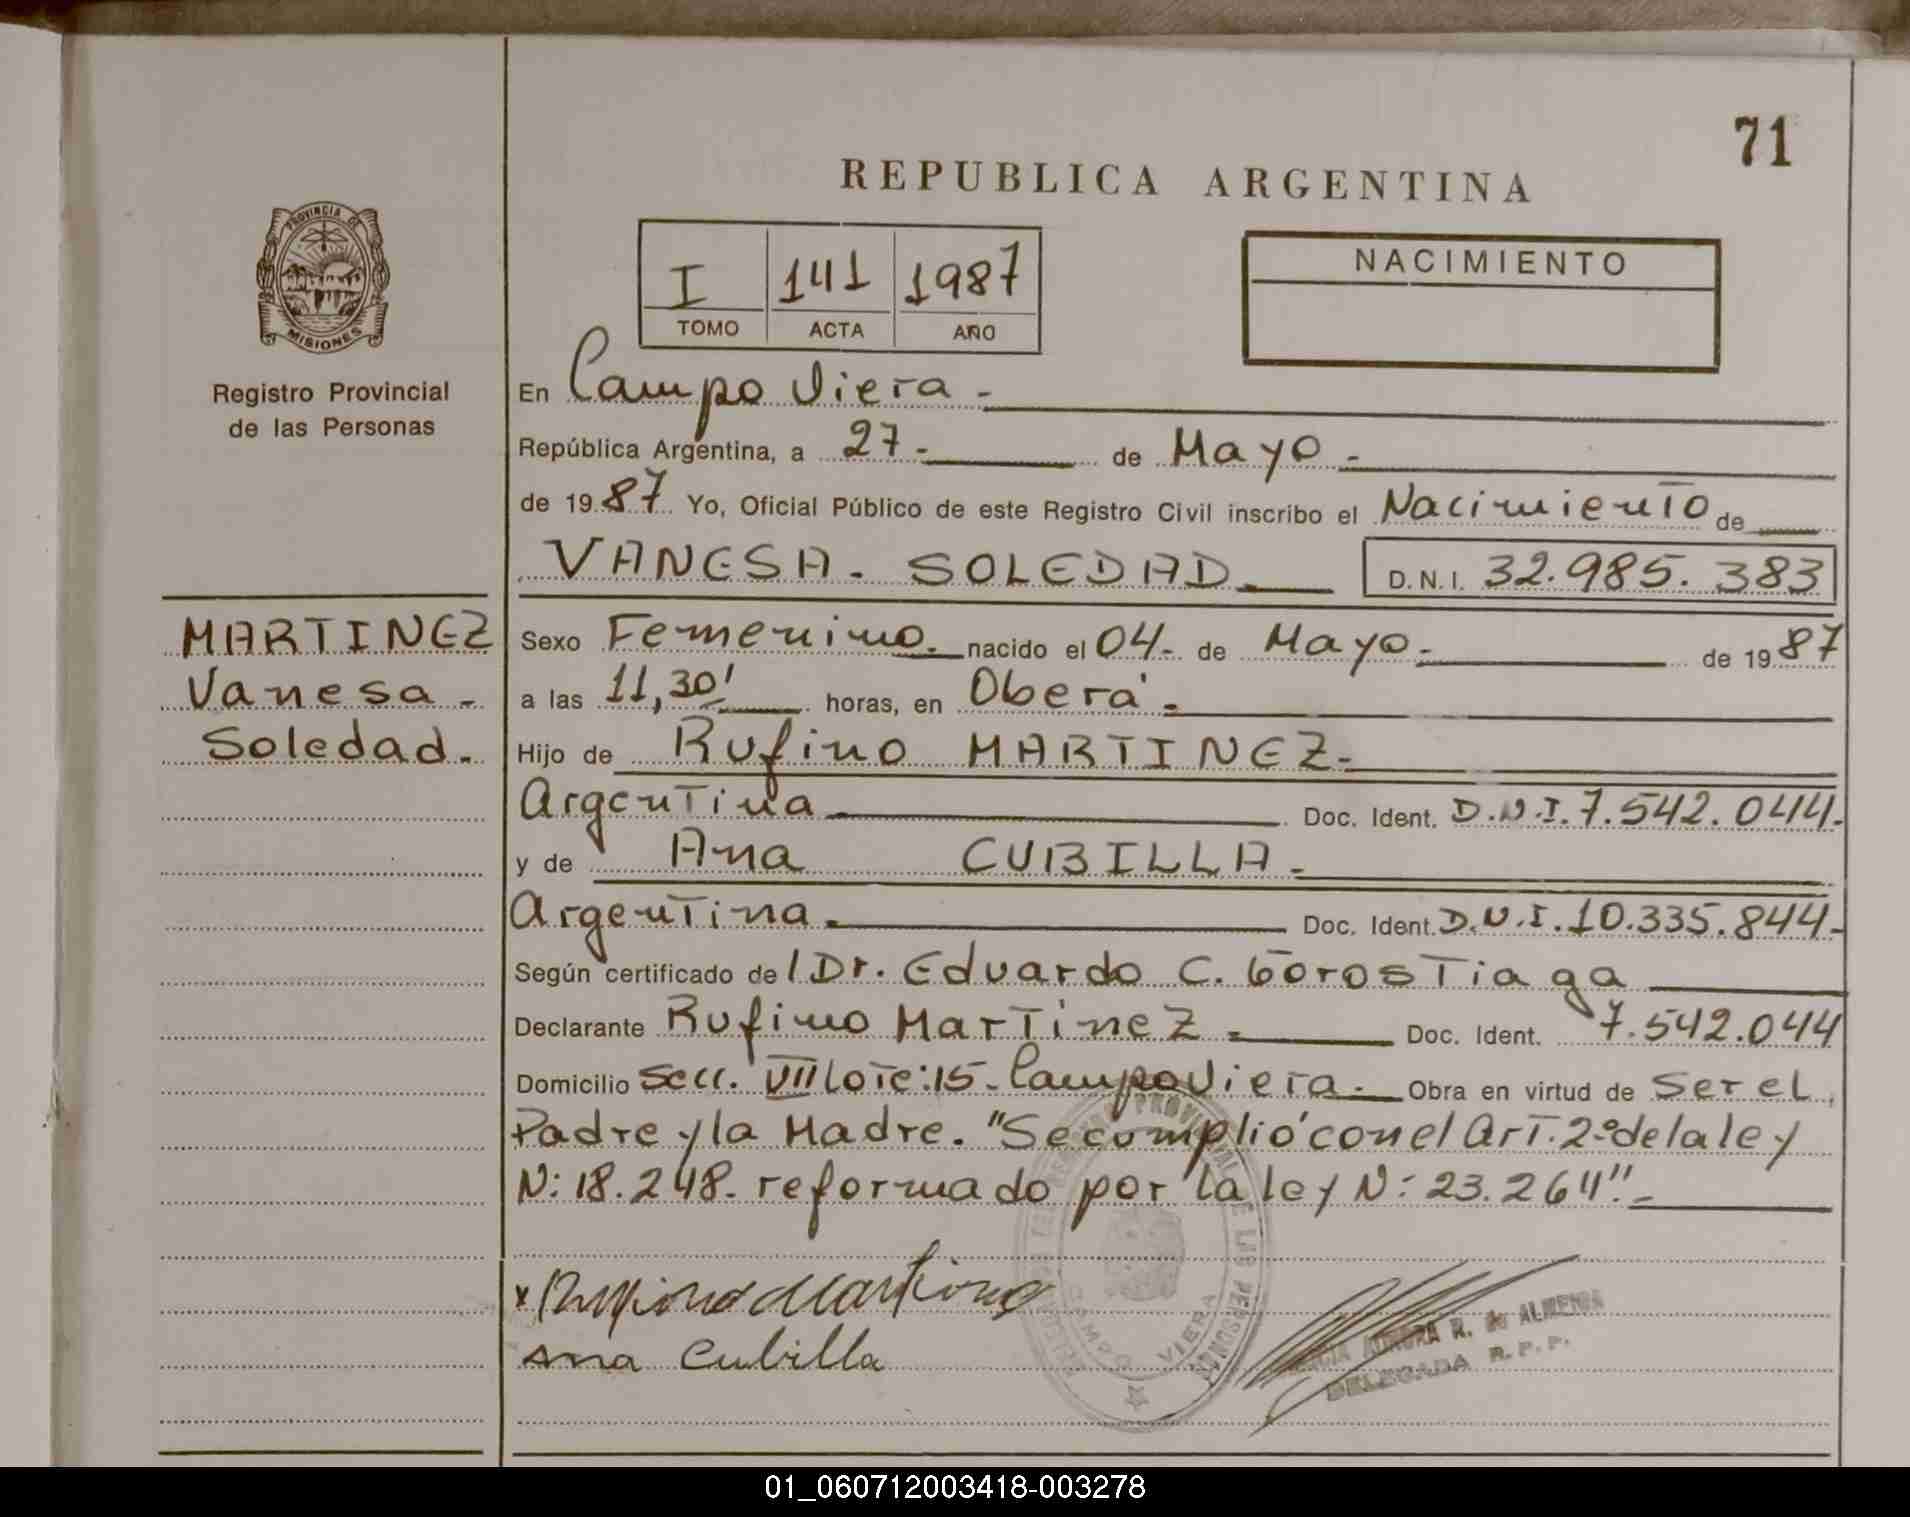 71
REPUBLICA ARGENTINA
PROVINCIA DE
MISIONES
Registro Provincial
de las Personas
I 141 1987
TOMO ACTA AÑO
NACIMIENTO
En Campo Viera -
República Argentina, a 27- de Mayo -
de 1987 Yo, Oficial Público de este Registro Civil inscribo el Nacimiento de
VANESA. SOLEDAD. D.N.I. 32.985.383
MARTINEZ
Vanesa -
Soledad.
Sexo Femenino. nacido el 04- de Mayo- de 1987
a las 11,30' horas, en Oberá.
Hijo de Rufino MARTINEZ-
Argentina Doc. Ident. D.N.I. 7.542.044.
y de Ana CUBILLA-
Argentina. Doc. Ident. D.N.I. 10.335.844-
Según certificado de / Dr. Eduardo C. Gorostiaga
Declarante Rufino Martinez. Doc. Ident. 7.542.044
Domicilio Secc. VII Lote:15- Campo Viera. Obra en virtud de Ser el
Padre y la Madre. "Se cumplió con el Art. 2º de la ley
N: 18.248. reformado por la ley N: 23.264".-
x Rufino Martinez
Ana Cubilla
CAMPO VIERA
AURORA R. de ALMEIDA
DELEGADA R.P.P.
01_060712003418-003278